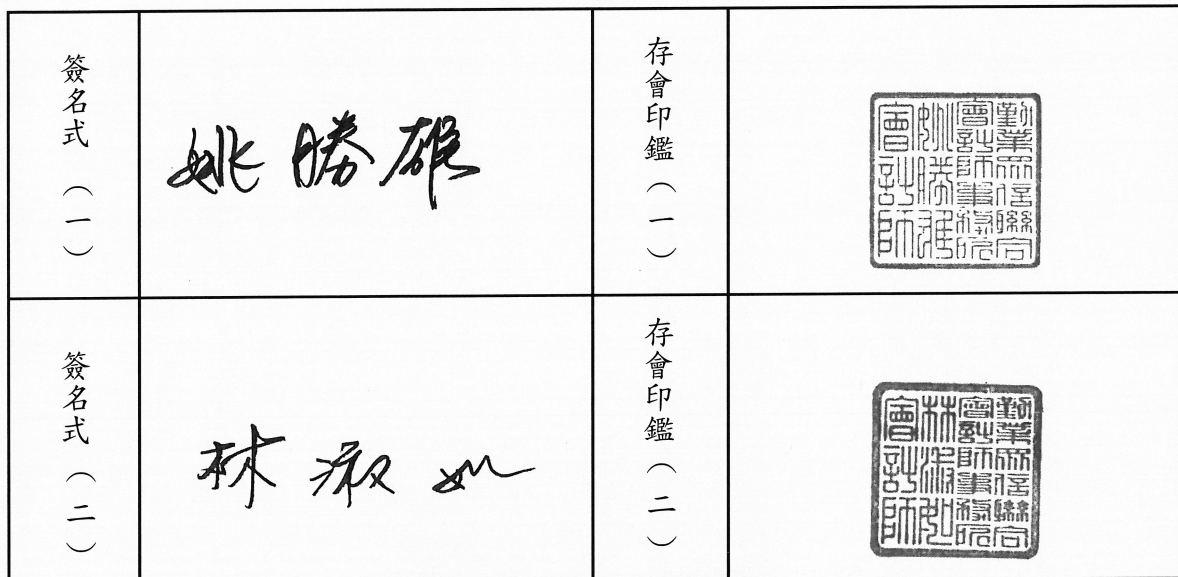 簽名式（一）
姚勝雄
存會印鑑（一）
勤業眾信聯合
會計師事務所
姚勝雄
會計師
簽名式（二）
林淑如
存會印鑑（二）
勤業眾信聯合
會計師事務所
林淑如
會計師